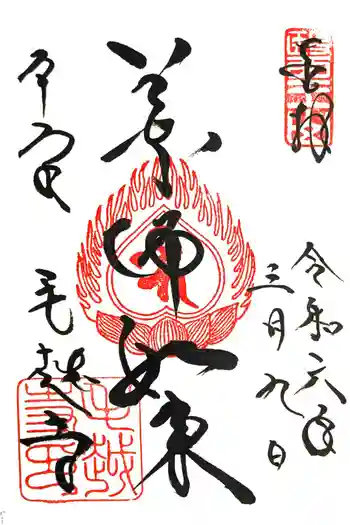 奉拝
令和六年
三月九日
薬師如来
平泉
毛越寺